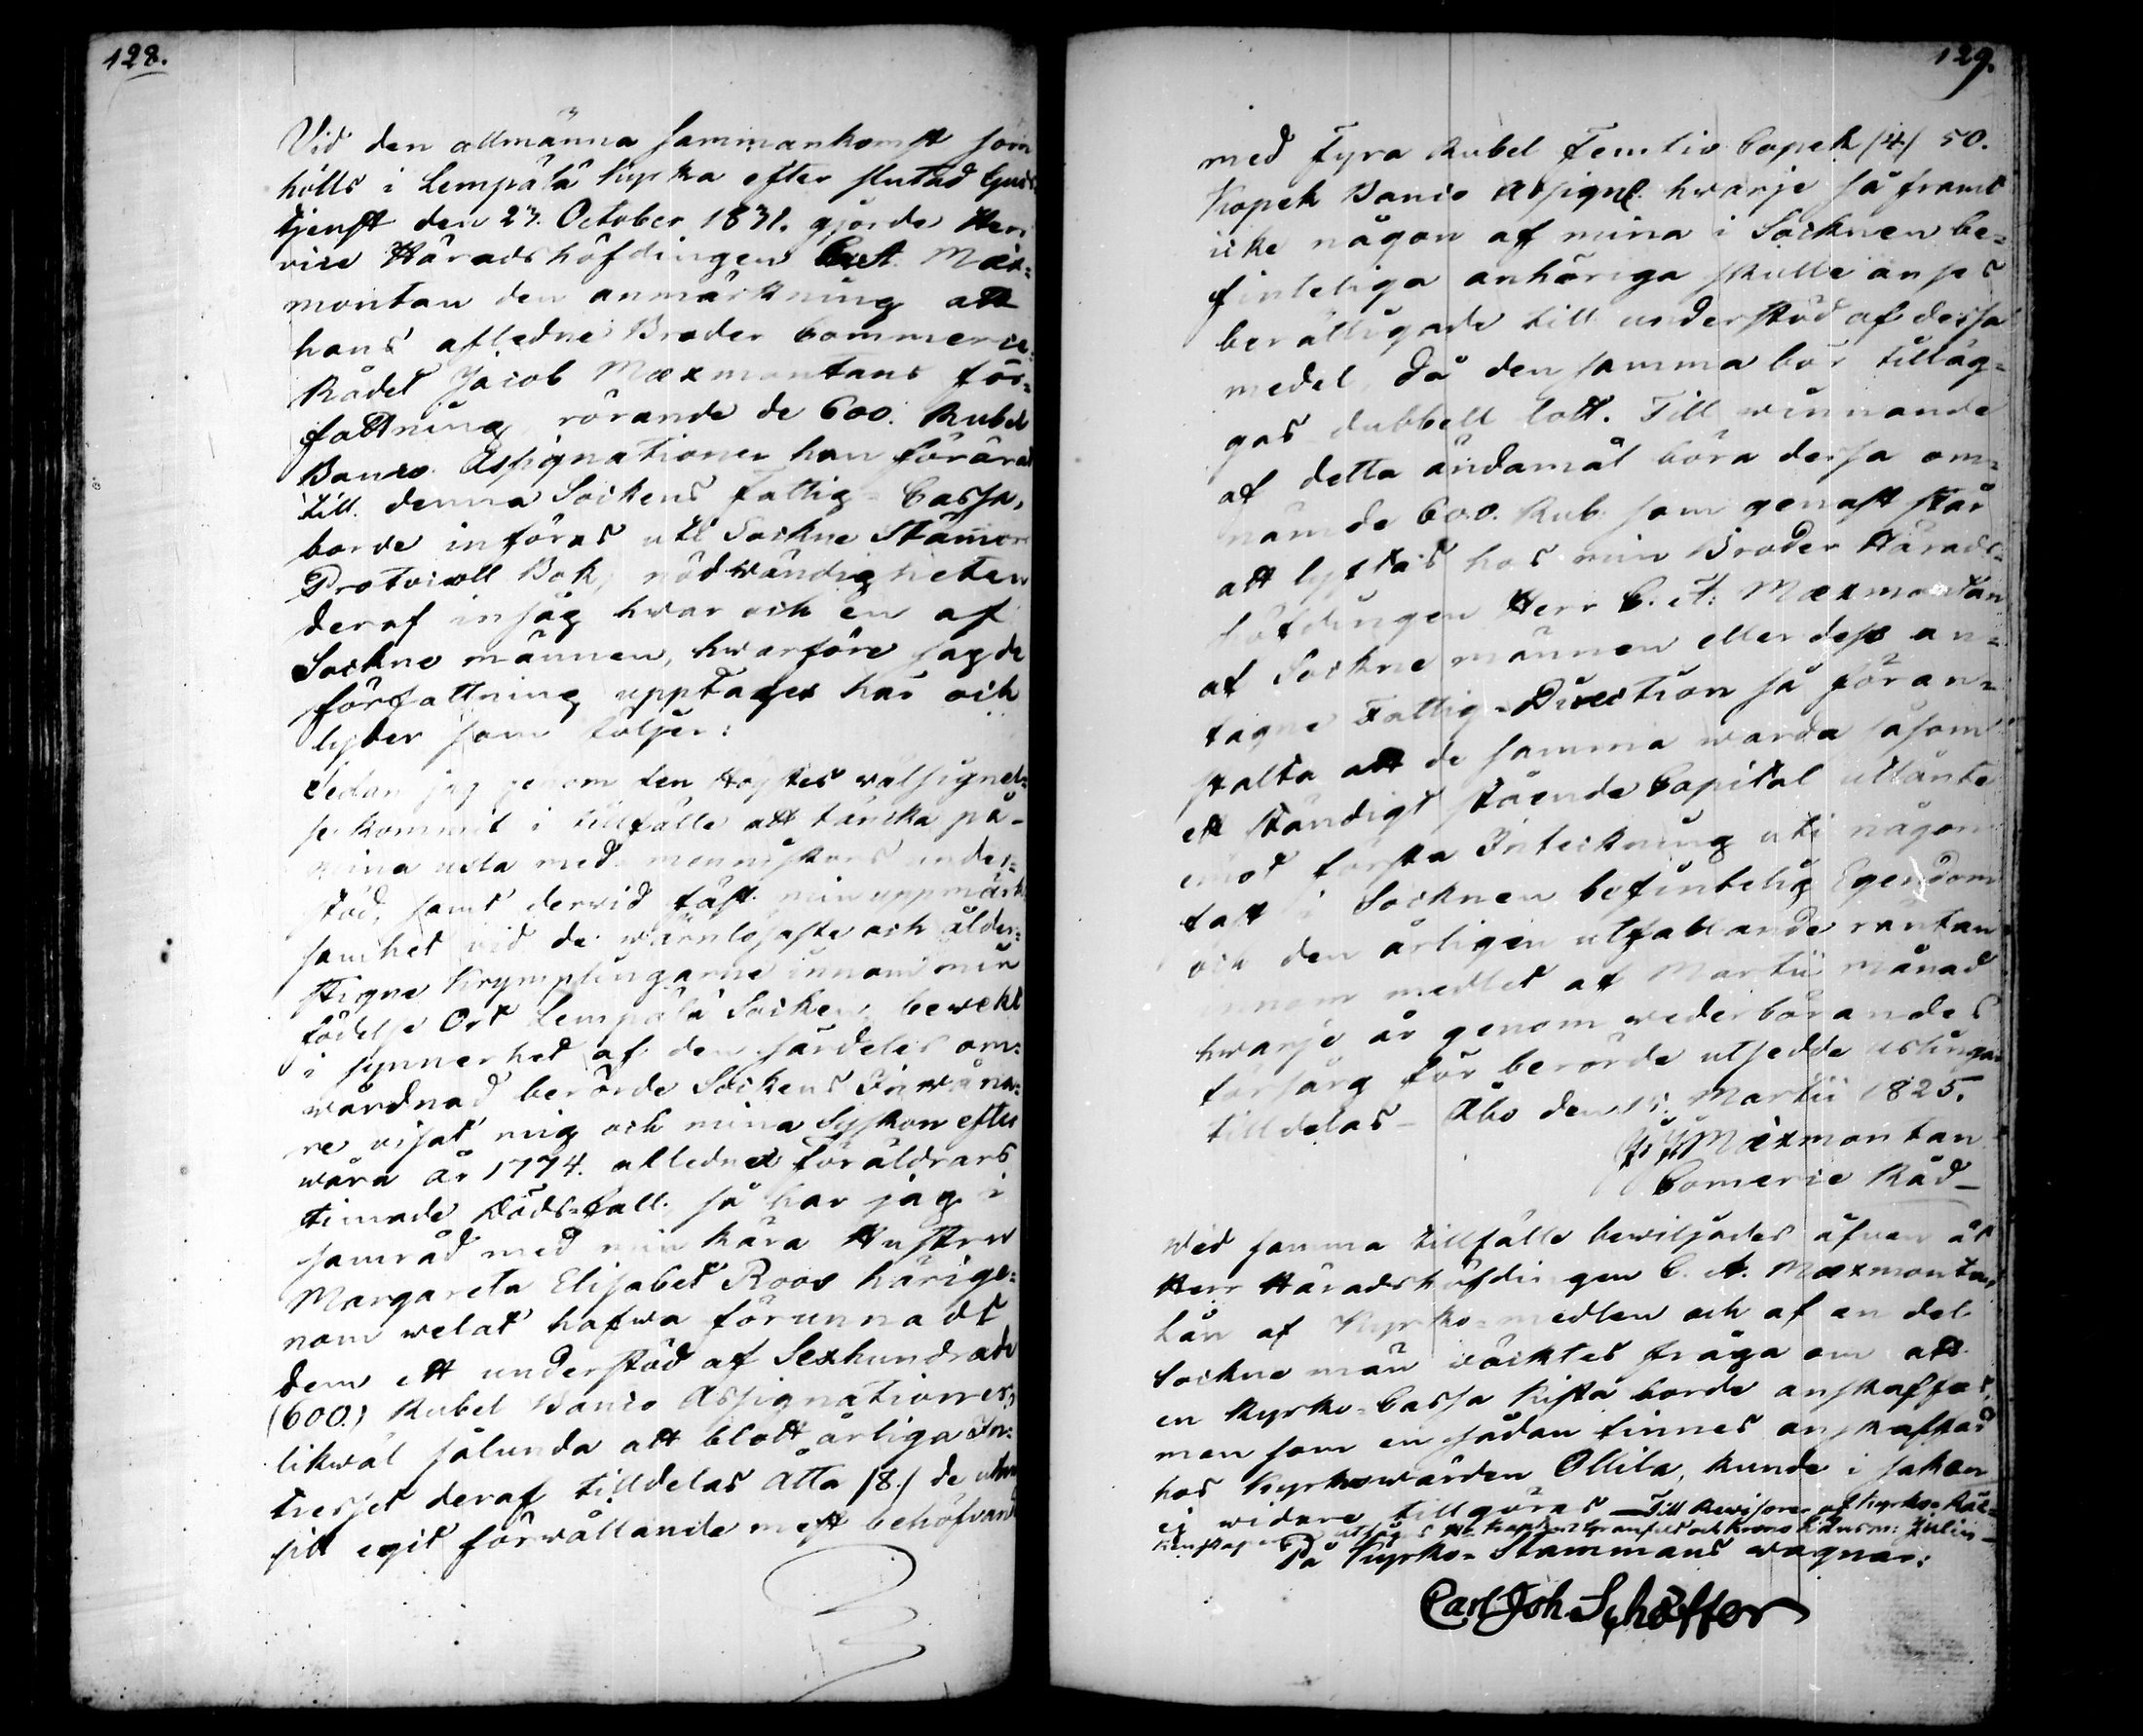 128.
Vid den allmänna Sammankomst som
hölls i Lempälä Kyrka efter slutad Guds
tjenst den 23. October 1831. gjorde Herr
vice Häradshöfdingen C. A. Mæx=
montan den anmärkning att
hans afledne Broder Commerce
Rådet Jacob Mæxmontans för=
fattning, rörande de 600. Rubel
Banco Assignationer han förärat
till denna Sockens Fattig-Cassa,
borde införas uti Sockne Stämmo
Protocoll Bok, nödwändigheten
deraf insåg hwar och en af
Sockne männen, hwarföre sagde
författning upptages här och
lyder som följer:
Sedan jag genom den Högstes wälsignel=
se kommit i tillfälle att täncka på
mina usla med menniskors under=
stöd, samt derwid fäst min uppmärk
samhet wid de wärnlösaste och ålder=
stigne Krymplingarne innom min
födelse Ort Lempälä Socken, bewekt
i synnerhet af den särdeles om=
wårdnad berörde Sockens Inwåna=
re visat mig och mina Syskon efter
wåra år 1774. afledne Föräldrars
timade Döds-fall, så har jag i
samråd med min kära Hustru
Margareta Elisabet Roos härige=
nom welat hafwa förunnadt
dem ett understöd af Sexhundrade
(600.) Rubel Banco Assignationer,
likwäl sålunda att blott årliga In=
tresset deraf tilldelas Åtta (8.) de utan
sitt egit förwållande mest behöfvand
129.
med Fyra Rubel Femtio Copek (4) 50.
Kopek Banco Assign. hwarje så framt
icke någon af mina i Socknen be=
finteliga anhöriga skulle anses
berättigade till understöd af dessa
medel, då den samma bör tilläg=
gas dubbell lott. Till winnande
af detta ändamål böra dessa om=
nämde 600. Rub. som genast står
att lyftas hos min Broder Härads=
höfdingen Herr C. A. Mæxmontan
af Sockne männen eller dess an=
tagne Fattig-Direction så föran=
stalta att de samma warda såsom
ett ständigt stående Capital utlånte
emot första Inteckning uti någon
fast i Socknen befintelig Egendom
och den årligen utfallande räntan
innom medlet af Martii månad
hwarje år genom wederbörandes
försorg för berörde utsedde uslingar
tilldelas – Åbo den 15. Martii 1825.
Mæxmontan
Comerce Råd –
Wid samma tillfälle bewiljades äfwen åt
Herr Häradshöfdingen C. A. Mæxmontan
Lån af Kyrko-medlen och af en del
Sockne män wäcktes fråga om att
en Kyrko-Cassa Kista borde anskaffas,
men som en sådan finnes anskaffad
hos Kyrkowärden Ollila, kunde i saken
ej widare tillgöras – Till Revisorer af Kyrko-Räk=
enskaper utsågs Hr Kapten Granfelt och Krono Länsm: Julin –
På Kyrko-Stämmans wägnar:
Carl Joh Schöffer